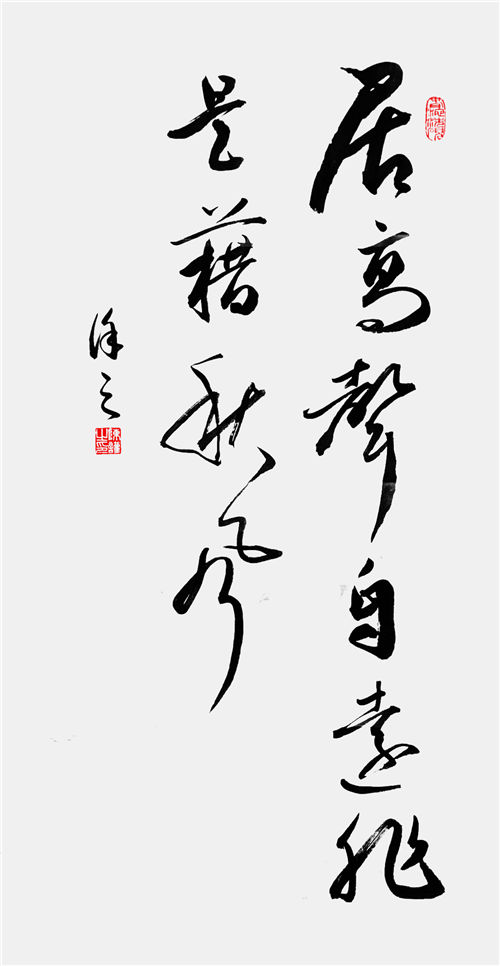 居高聲自遠非
是藉秋風
之